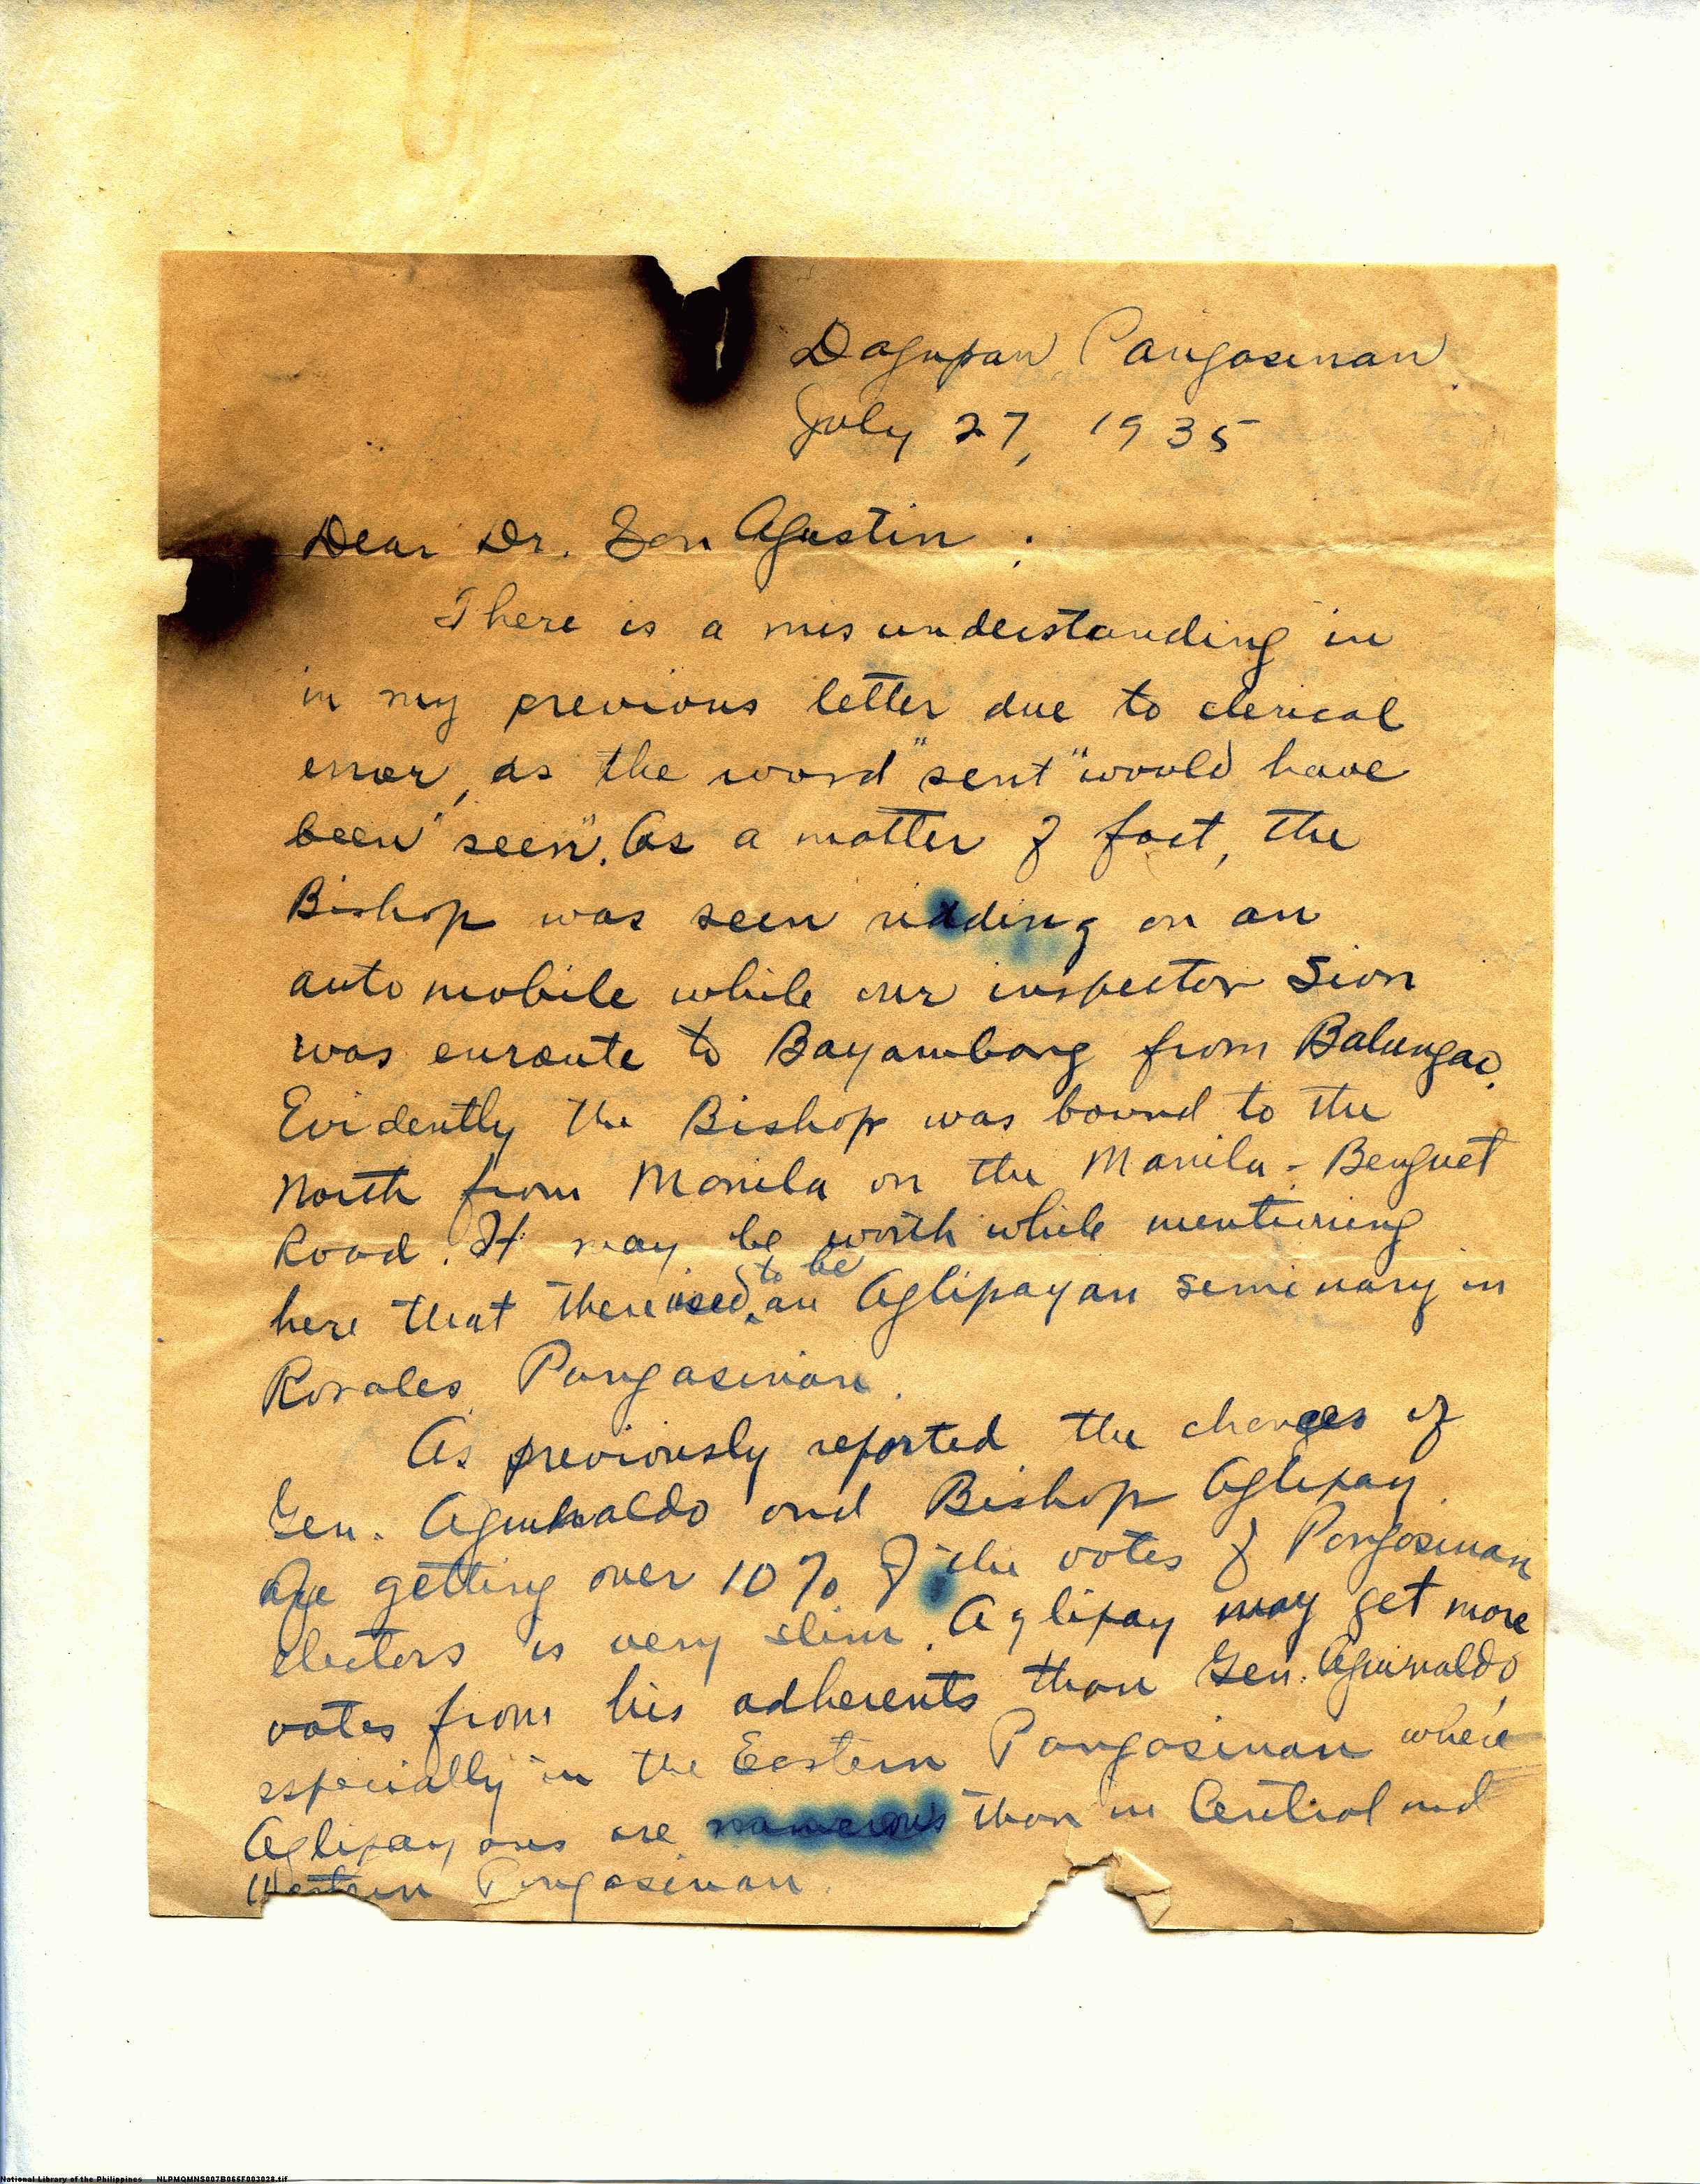 Dagupan, Pangasinan
July 27, 1935
Dear Dr. San Agustin :
There is a misunderstanding in
in my previous letter due to clerical
error, as the word "sent" would have
been "seen". As a matter of fact, the
Bishop was seen ridding on an
automobile while our inspector Sion
was enroute to Bayambang from Balungao.
Evidently the Bishop was bound to the
North from Manila on the Manila-Benguet
Road. It may be worth while mentioning
here that there used to be an Aglipayan seminary in
Rosales, Pangasinan.
As previously reported the chances of
Gen. Aguinaldo and Bishop Aglipay
of getting over 10% of the votes of Pangasinan
electors is very slim. Aglipay may get more
votes from his adherents than Gen. Aguinaldo,
especially in the Eastern Pangasinan where
Aglipayans are numerous than in Central and
Western Pangasinan.
National Library of the Philippines NLPMQMNS007B066F003028.tif